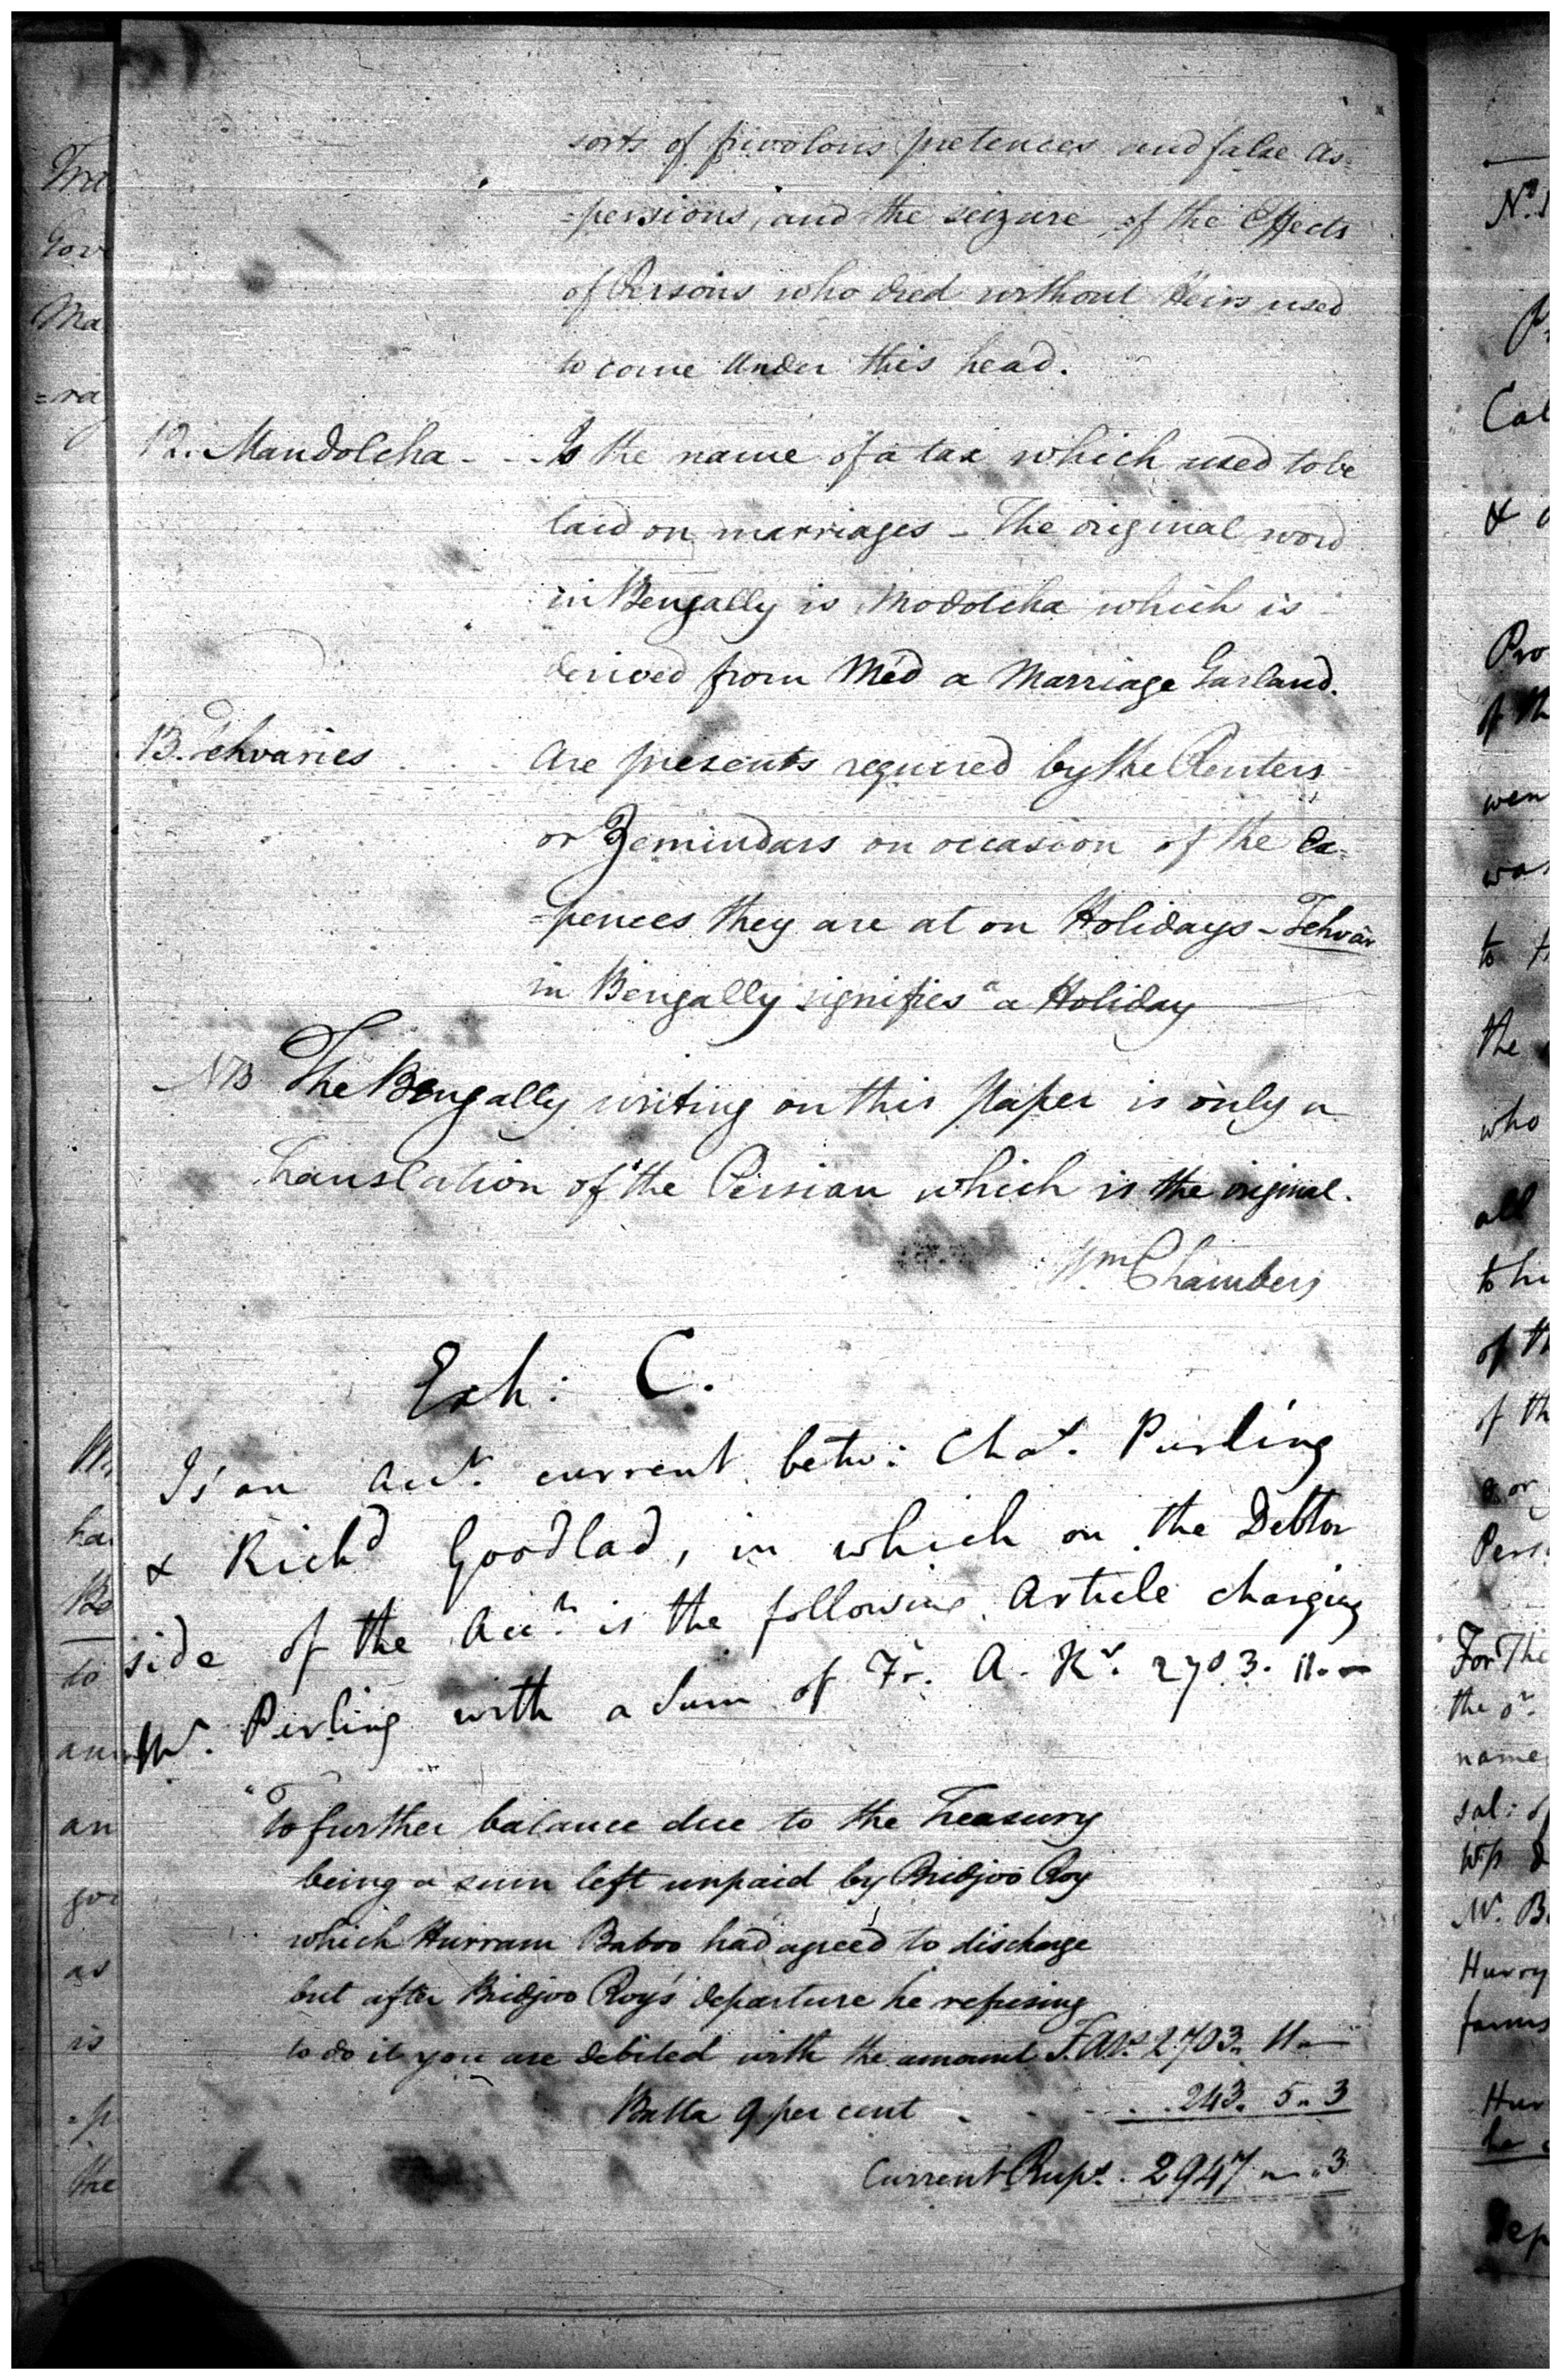 sorts of frivolous pretences and false as=
=persions, and the seizure of the Effects
of Persons who died without Heirs used
to come under this head.
12. Mandolcha - - Is the name of a tax which used to be
laid on marriages - The original word
in Bengally is Modolcha which is
derived from Mod a Marriage Garland.
13. Tehvaries . . . Are presents required by the Renters
or Zemindars on occasion of the Ex=
=pences they are at on Holidays - Tehvâr
in Bengally signifies a Holiday
NB The Bengally writing on this paper is only a
translation of the Persian which is the original.
Wm Chambers
Exh: C.
Is an acct. current betw: Chas. Purling
& Richd Goodlad, in which on the Debtor
side of the Acct. is the following Article charging
Mr. Purling with a Sum of Fr. A. Rs. 2703. 11. -
"To further balance due to the Treasury
being a sum left unpaid by Bridjoo Roy
which Hurram Baboo had agreed to discharge
but after Bridjoo Roy's departure he refusing
to do it you are debited with the amount F. Ars. 2703. 11 -
Batta 9 per cent - - - . . 243. 5 " 3
Current Rups. . 2947 " - " 3
Tra
Gov
Ma
=ra
ha
Bo
to
an
as
is
=p
the
No.
Cal
&
Pro
of th
wen
was
to
the
who
all
to hi
of th
of th
Pers
For The
the
name
sal:
Mr. B
Hurry
farms
Hur
he
Dep